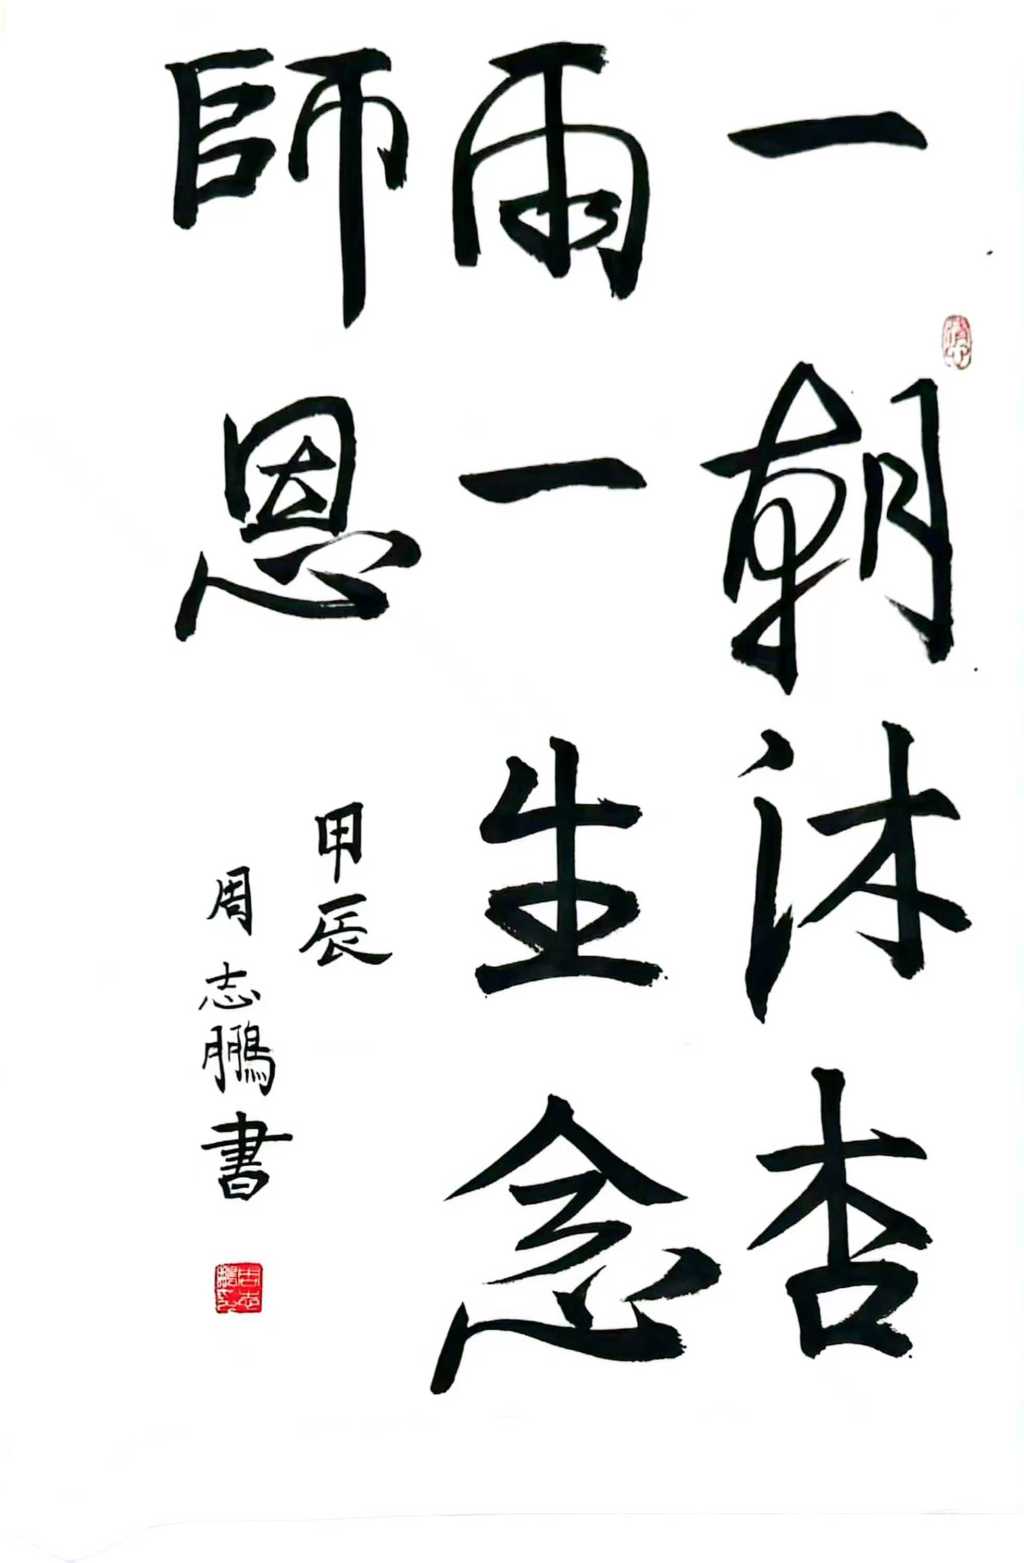 一朝沐杏
雨一生念
師恩
甲辰
周志鵬書